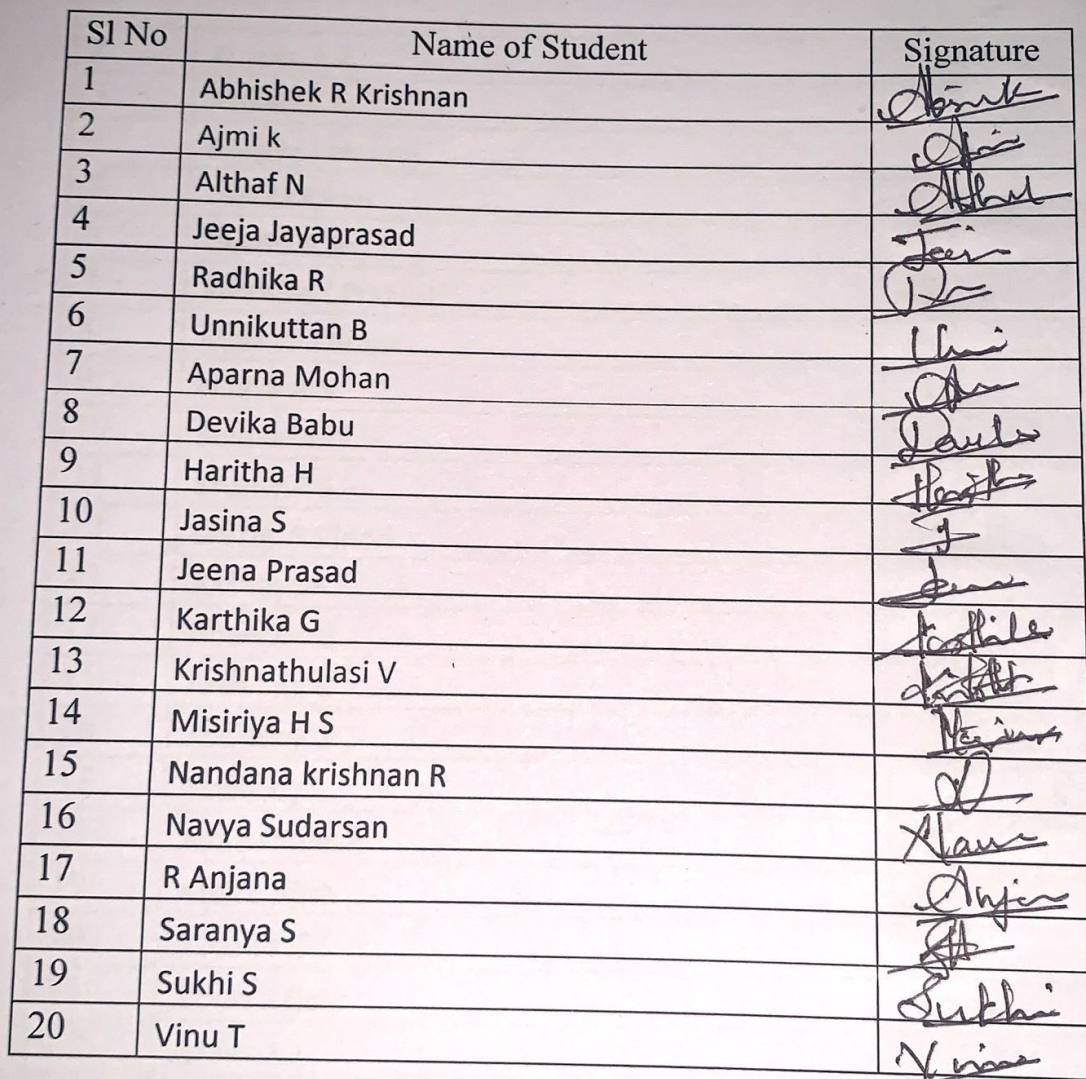 Sl No Name of Student Signature
1 Abhishek R Krishnan
2 Ajmi k
3 Althaf N
4 Jeeja Jayaprasad
5 Radhika R
6 Unnikuttan B
7 Aparna Mohan
8 Devika Babu
9 Haritha H
10 Jasina S
11 Jeena Prasad
12 Karthika G
13 Krishnathulasi V
14 Misiriya H S
15 Nandana krishnan R
16 Navya Sudarsan
17 R Anjana
18 Saranya S
19 Sukhi S Sukhi
20 Vinu T